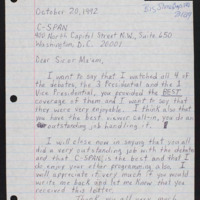 October 20, 1992
C-SPAN
400 North Capitol Street N.W., Suite 650
Washington, D.C. 20001
Dear Sir or Ma'am,
I want to say that I watched all 4 of
the debates, the 3 Presidential and the 1
Vice Presidential, you provided the BEST
coverage of them and I want to say that
they were very enjoyable. I think also that
you have the best viewer call-in, you do an
outstanding job handling it.
I will close now in saying that you all
did a very outstanding job with the debates
and that C-SPAN is the best and that I
do enjoy your other programming also. I
will appreciate it very much if you would
write me back and let me know that you
received this letter.
Thank you all very much